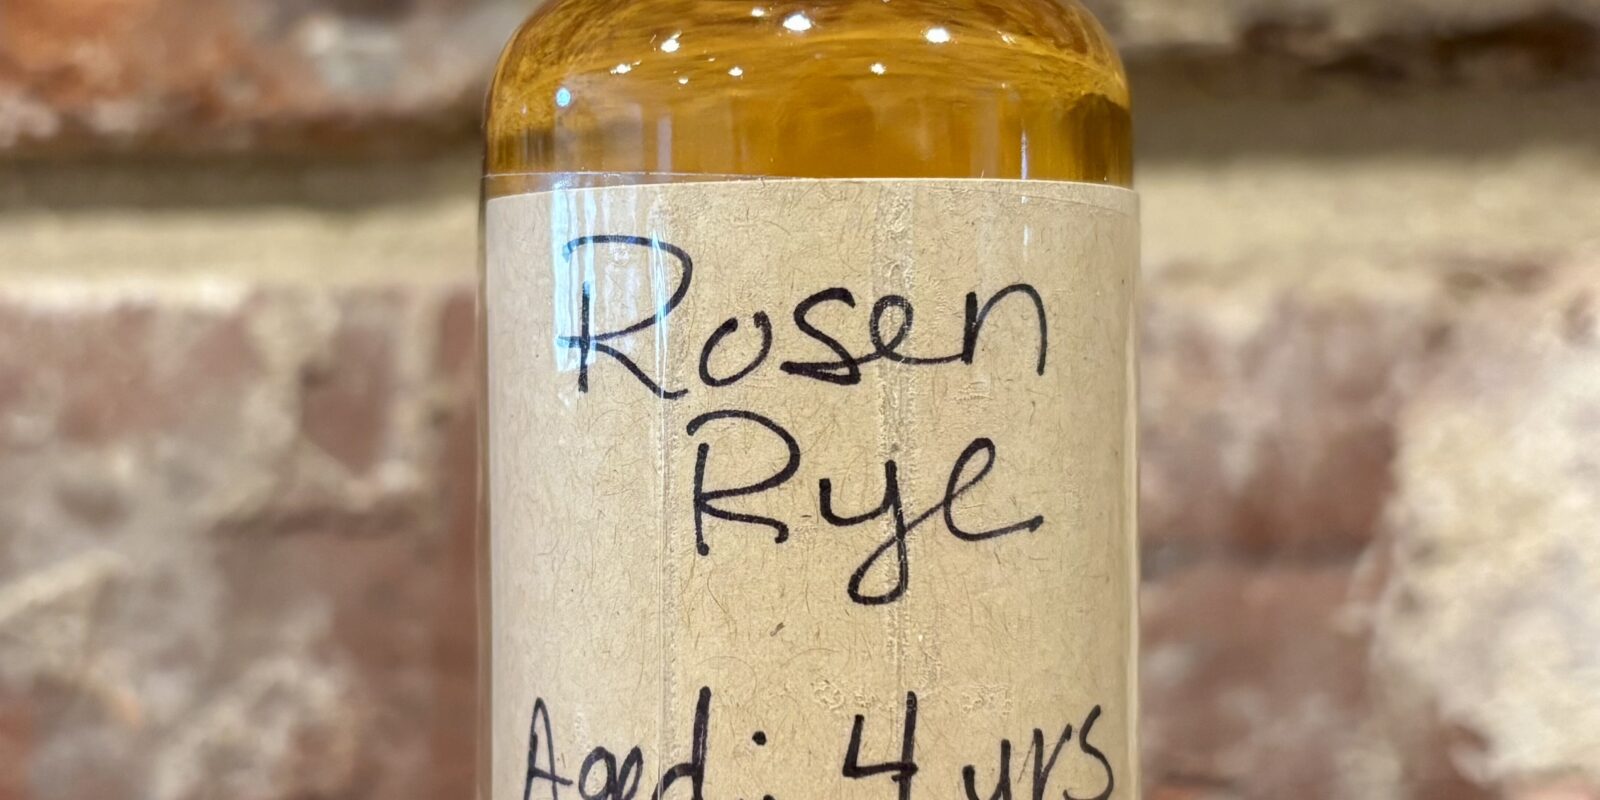 Rosen
Rye
Aged: 4 yrs